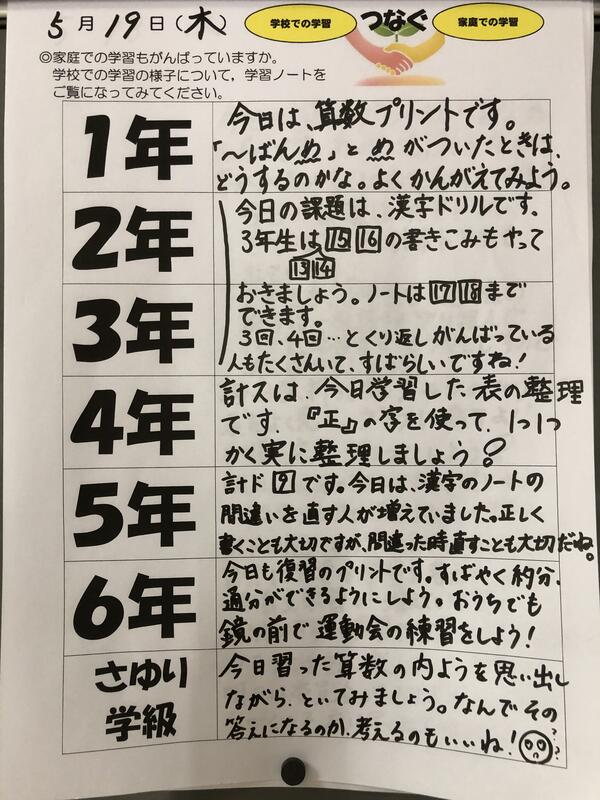 5月19日(木)
学校での学習 つなぐ 家庭での学習
◎家庭での学習もがんばっていますか。
学校での学習の様子について，学習ノートを
ご覧になってみてください。
1年
今日は、算数プリントです。
「〜ばんめ」と めがついたときは、
どうするのかな。よくかんがえてみよう。
2年
3年
今日の課題は、漢字ドリルです。
3年生は15 16の書きこみもやって
13 14
おきましょう。ノートは17 18まで
できます。
3回、4回…とくり返しがんばっている
人もたくさんいて、すばらしいですね!
4年
計スは、今日学習した表の整理
です。『正』の字を使って、1つ1つ
かく実に整理しましょう。
5年
計ド 9です。今日は、漢字のノートの
間違いを直す人が増えていました。正しく
書くことも大切ですが、間違った時直すことも大切だね。
6年
今日も復習のプリントです。すばやく約分、
通分ができるようにしよう。おうちでも
鏡の前で運動会の練習をしよう!
さゆり
学級
今日習った算数の内ようを思い出し
ながら、といてみましょう。なんでその
答えになるのか、考えるのもいいね!??